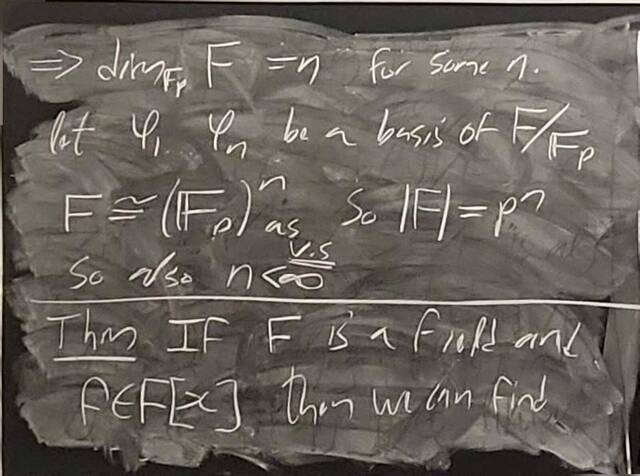 ⇒ dim_{𝔽_p} F = n for some n.
let φ₁ φₙ be a basis of F/𝔽_p
F ≅ (𝔽_p)ⁿ as v.s So |F| = pⁿ
So also n < ∞
Thm If F is a field and
f ∈ F[x], then we can find